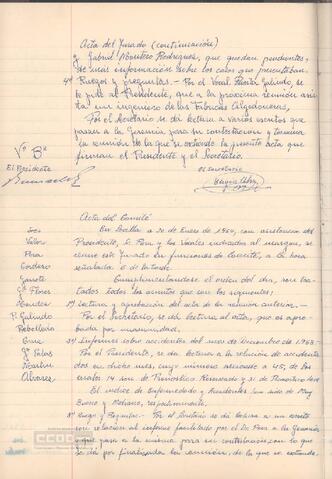 Acta del Jurado (continuación)
y Gabriel Montero Rodriguez, que quedan pendientes,
de mas información sobre los casos que presentaban.
4º Ruegos y preguntas.- Por el Vocal Perita Galindo, se
le pide al Presidente, que a la proxima reunión asis
ta un ingeniero de las Fabricas Algodoneras,
Por el Secretario se dá lectura a varios escritos que
pasan a la Gerencia para su contestación y termina
la reunión de la que se extiende la presente acta que
firman el Presidente y el Secretario.
Vº Bº
El Presidente
el secretario
Acta del Comité
En Sevilla a 30 de Enero de 1964, con asistencia del
Presidente, D. Pera y los Vocales indicados al margen, se
reune este Jurado en funciones de Comité, a la hora
señalada de la tarde.
Cumplimentandose el orden del dia, son tra
tados todos los asuntos que son los siguientes;
1º Lectura y aprobación del acta de la reunion anterior.-
Por el Secretario, se dá lectura al acta, que es apro
bada por unanimidad,
2º Informes sobre accidentes del mes de Diciembre de 1963.
Por el Presidente, se da lectura a la relación de acciden
tes en dicho mes, cuyo numero asciende a 45; de los
cuales 14 son de Pronostico Reservado y 31 de Pronostico leve
El indice de Enfermedad y Accidentes han sido de Muy
Bueno y Mediano, respectivamente.
3º Ruego y Preguntas.- Por el Secretario se da lectura a un escrito
con relación al informe facilitado por el Dr. Pera a la Gerencia
que pasa a la misma para su contestación, con lo que
se da por finalizada la reunión, de la que se extiende,
Valor
Pera
Cordero
Zanote
G. Flores
Mendez
P. Galindo
Rebolledo
Gª Salas
Martin
Alvarez
CCOO